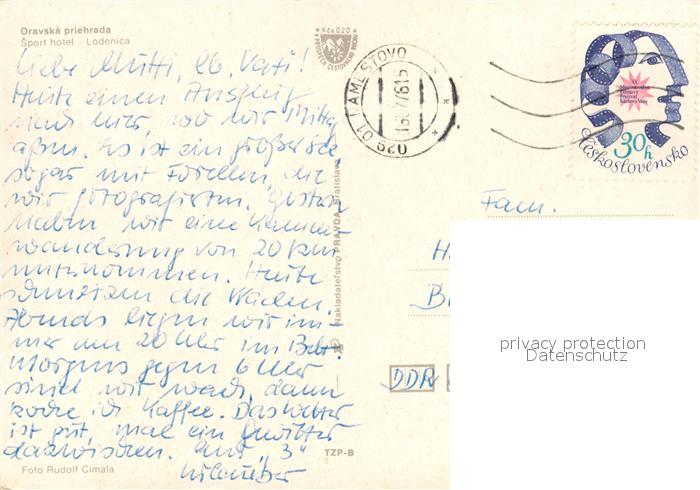 Oravská priehrada
Šport hotel - Lodenica
Liebe Mutti, lb. Vati!
Heute einen Ausflug
nach hier, wo wir Mittag
aßen. Es ist ein großer See
sogar mit Forellen, die
wir fotografierten. Gestern
haben wir eine Kamm-
wanderung von 20 km
unternommen. Heute
schmerzen die Waden.
Abends liegen wir im-
mer um 20 Uhr im Bett.
Morgens gegen 6 Uhr
sind wir wach, dann
koche ich Kaffee. Das Wetter
ist gut, mal ein Gewitter
dazwischen. Eure "3"
Foto Rudolf Cimala
TZP-B
Nakladateľstvo PRAVDA, Bratislava
Kčs 0.20
029 01 NÁMESTOVO
Karlovy Vary
30h
Československo
Fam.
H
B
DDR
privacy protection
Datenschutz